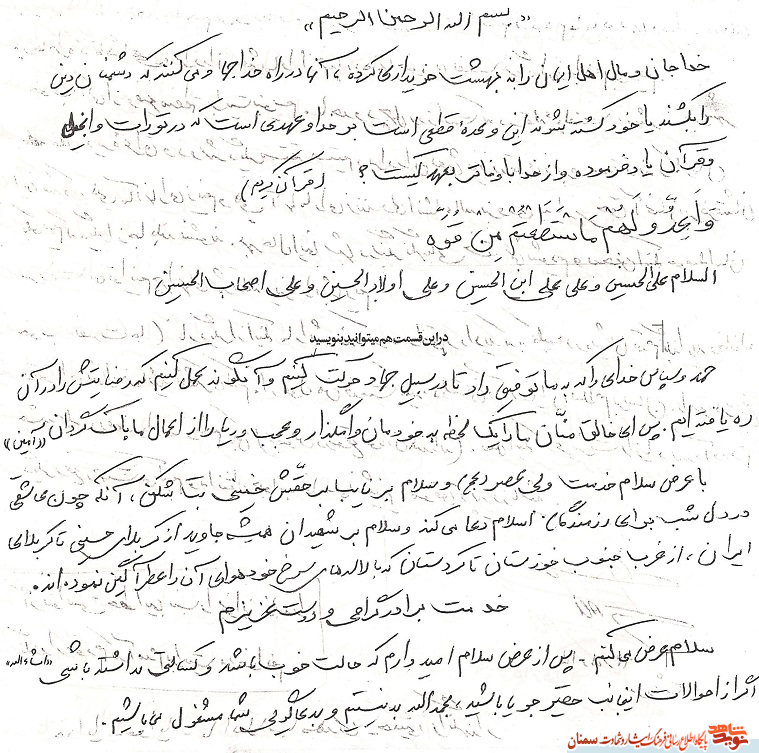 «بسم الله الرحمن الرحیم»
خدا جان و مال اهل ایمان را به بهشت خریداری کرده، آنها در راه خدا جهاد می‌کنند که دشمنان دین
را بکشند یا خود کشته شوند این وعده قطعی است بر خدا و عهدی است که در تورات و انجیل
و قرآن یاد فرموده و از خدا باوفاتر بعهد کیست؟ (قرآن کریم)
وَاَعِدّوُ لَهُم مَا ستَطَعتُم مِن قُوه
السلام علی الحسین و علی علی ابن الحسین و علی اولاد الحسین و علی اصحاب الحسین
در این قسمت هم میتوانید بنویسید
حمد و سپاس خدای را که به ما توفیق داد تا در سبیل جهاد حرکت کنیم و آنگونه عمل کنیم که رضایتش را در آن
ره یافته ایم. پس ای خالق منّان ما را یک لحظه به خودمان وامگذار و عجب و ریا را از اعمال ما پاک گردان «آمین»
با عرض سلام خدمت ولی عصر (عج) و سلام بر نایب بر حقّش خمینی بت شکن، آنکه چون عاشقی
در دل شب برای رزمندگان اسلام دعا می کند و سلام بر شهیدان همیشه جاوید از کربلای حسینی تا کربلای
ایران، از غرب جنوب خوزستان تا کردستان که با لاله‌های سرخ خود هوای آن را عطرآگین نموده‌اند.
خدمت برادر گرامی و دوست عزیزم
سلام عرض می کنم. پس از عرض سلام امیدوارم که حالت خوب باشد و کسالتی نداشته باشی «انشاءالله»
اگر از احوالات اینجانب حقیر جویا باشید، بحمدالله بد نیستم و بدعاگویی شما مشغول می باشیم.
نوید شاهد پایگاه اطلاع رسانی فرهنگ ایثار و شهادت سمنان